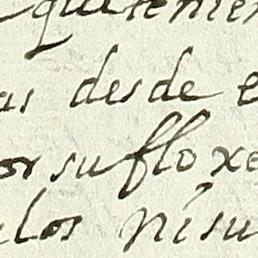 quetenien
as desde e
or su floxe
los ni su